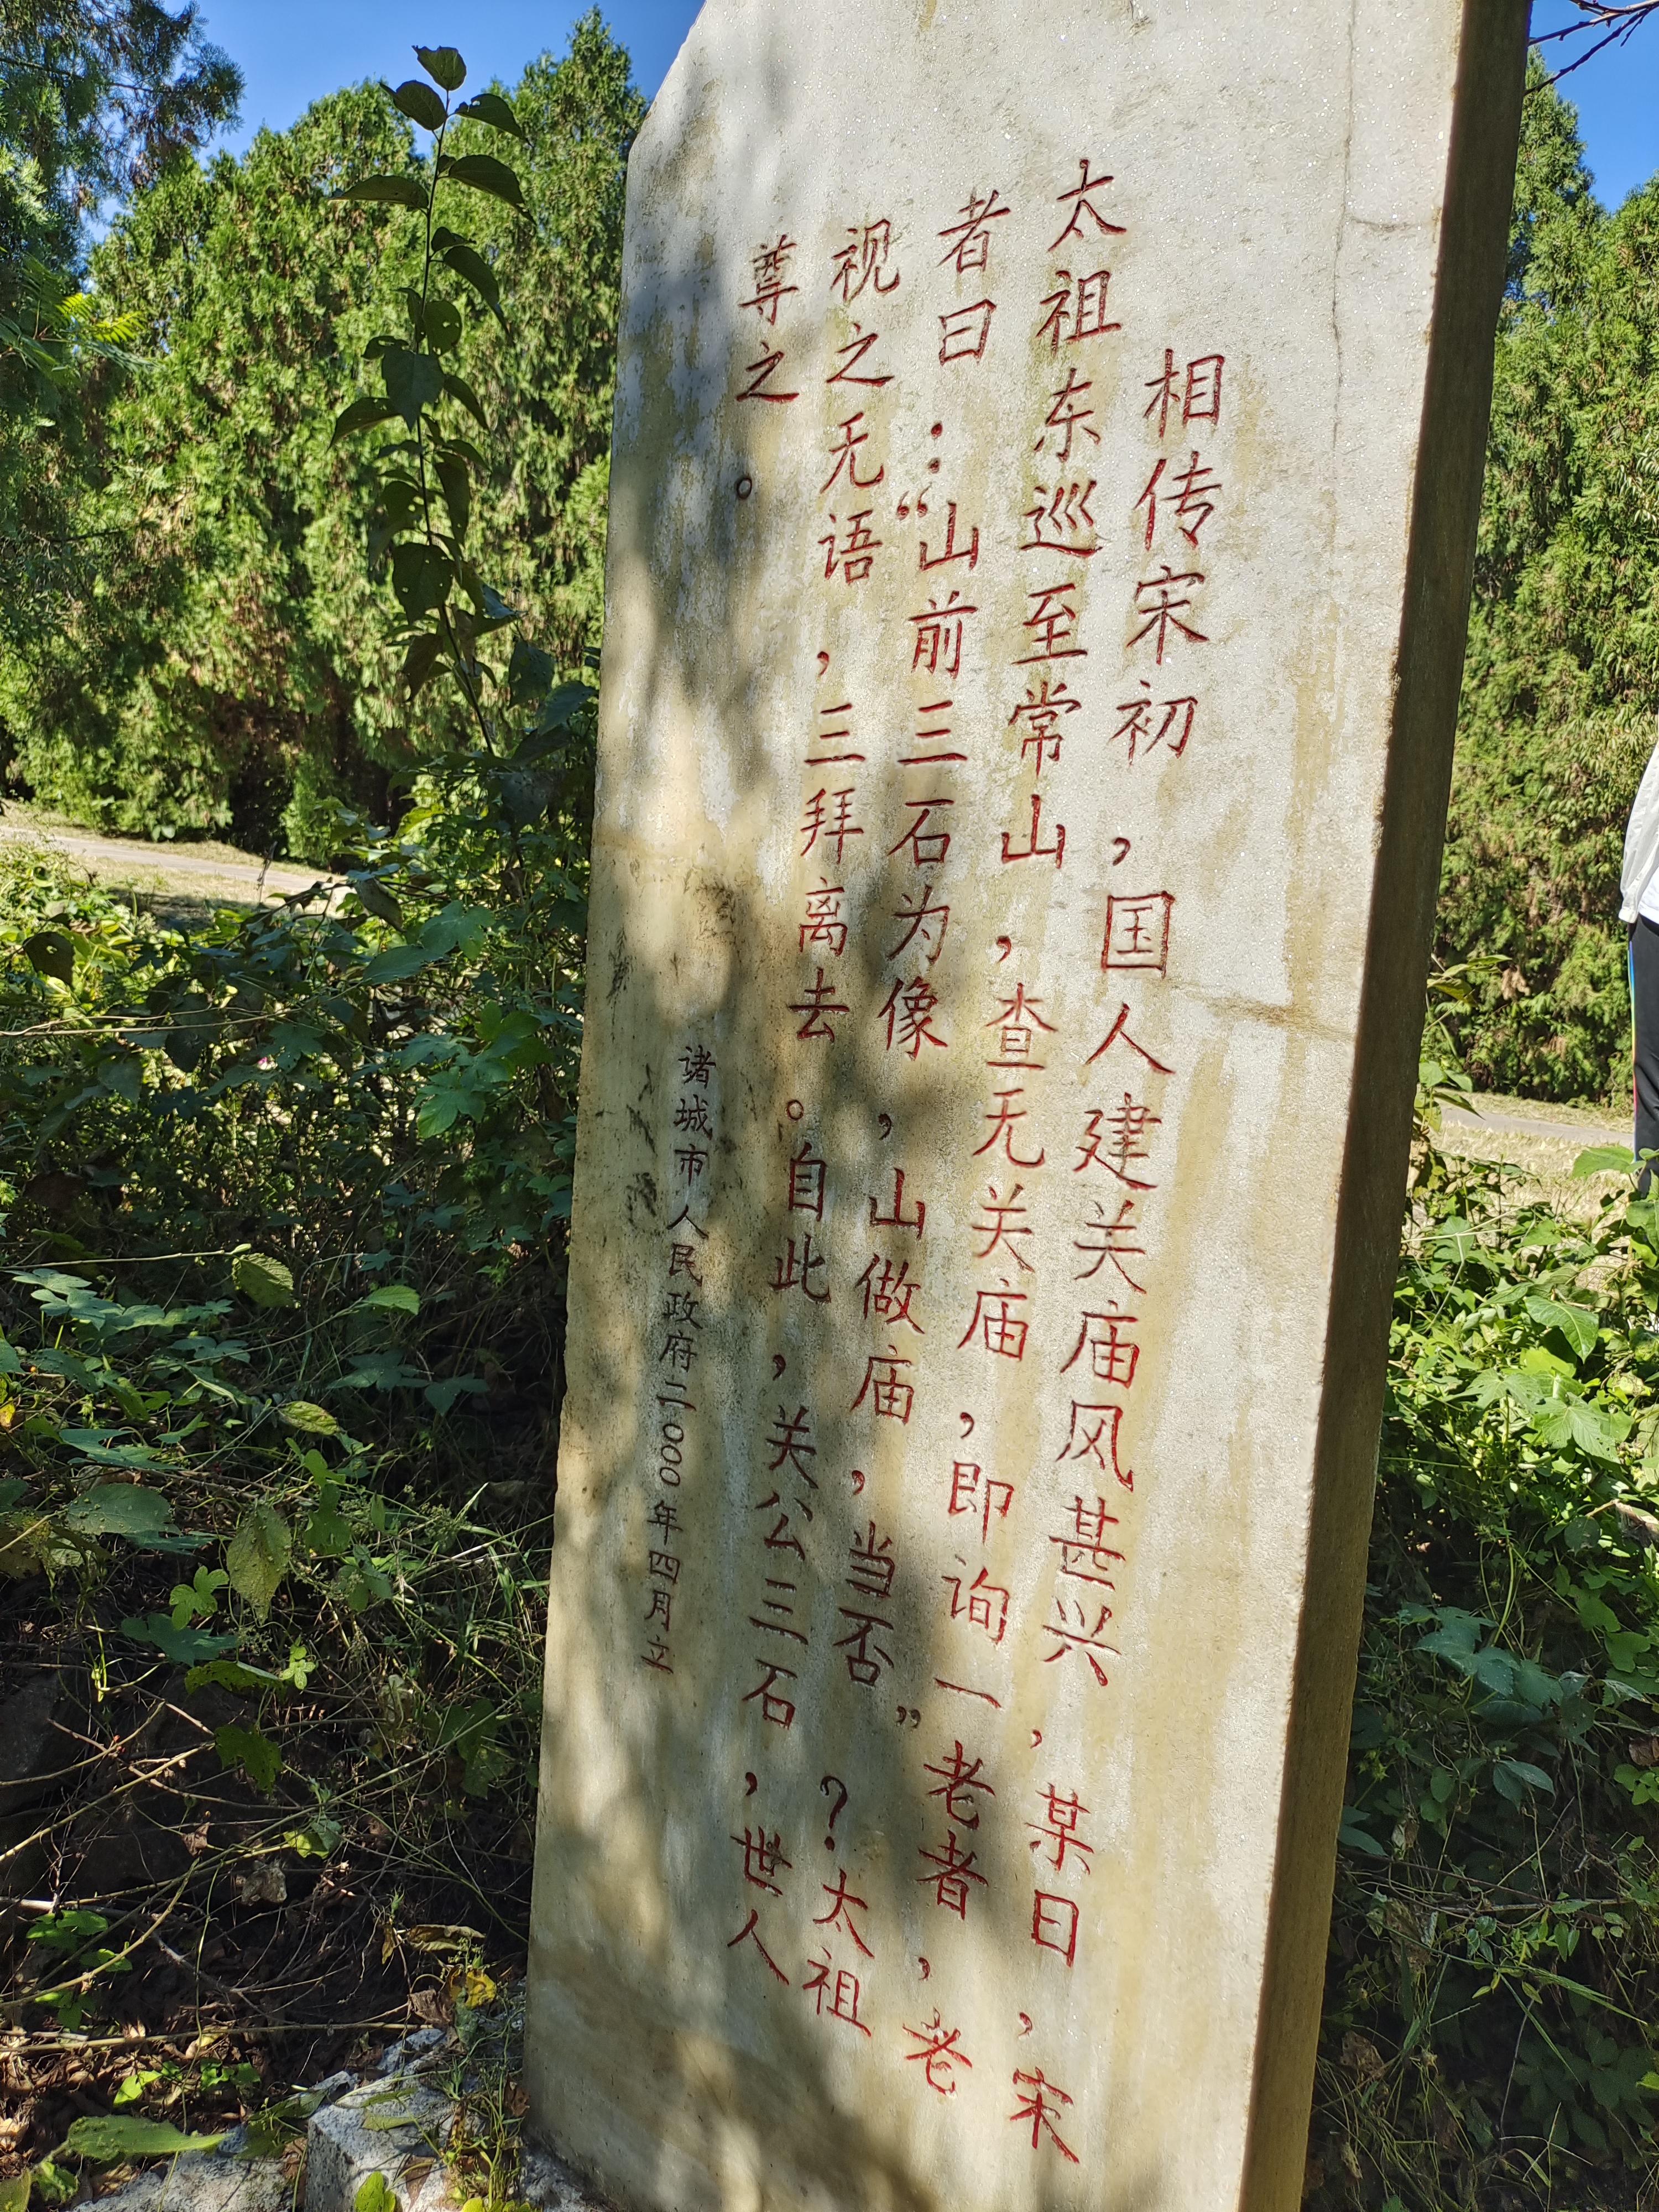 相传宋初,国人建关庙风甚兴,某日,宋
太祖东巡至常山,查无关庙,即询一老者,老
者曰:“山前三石为像,山做庙,当否”?太祖
视之无语,三拜离去。自此,关公三石,世人
尊之。
诸城市人民政府二〇〇〇年四月立